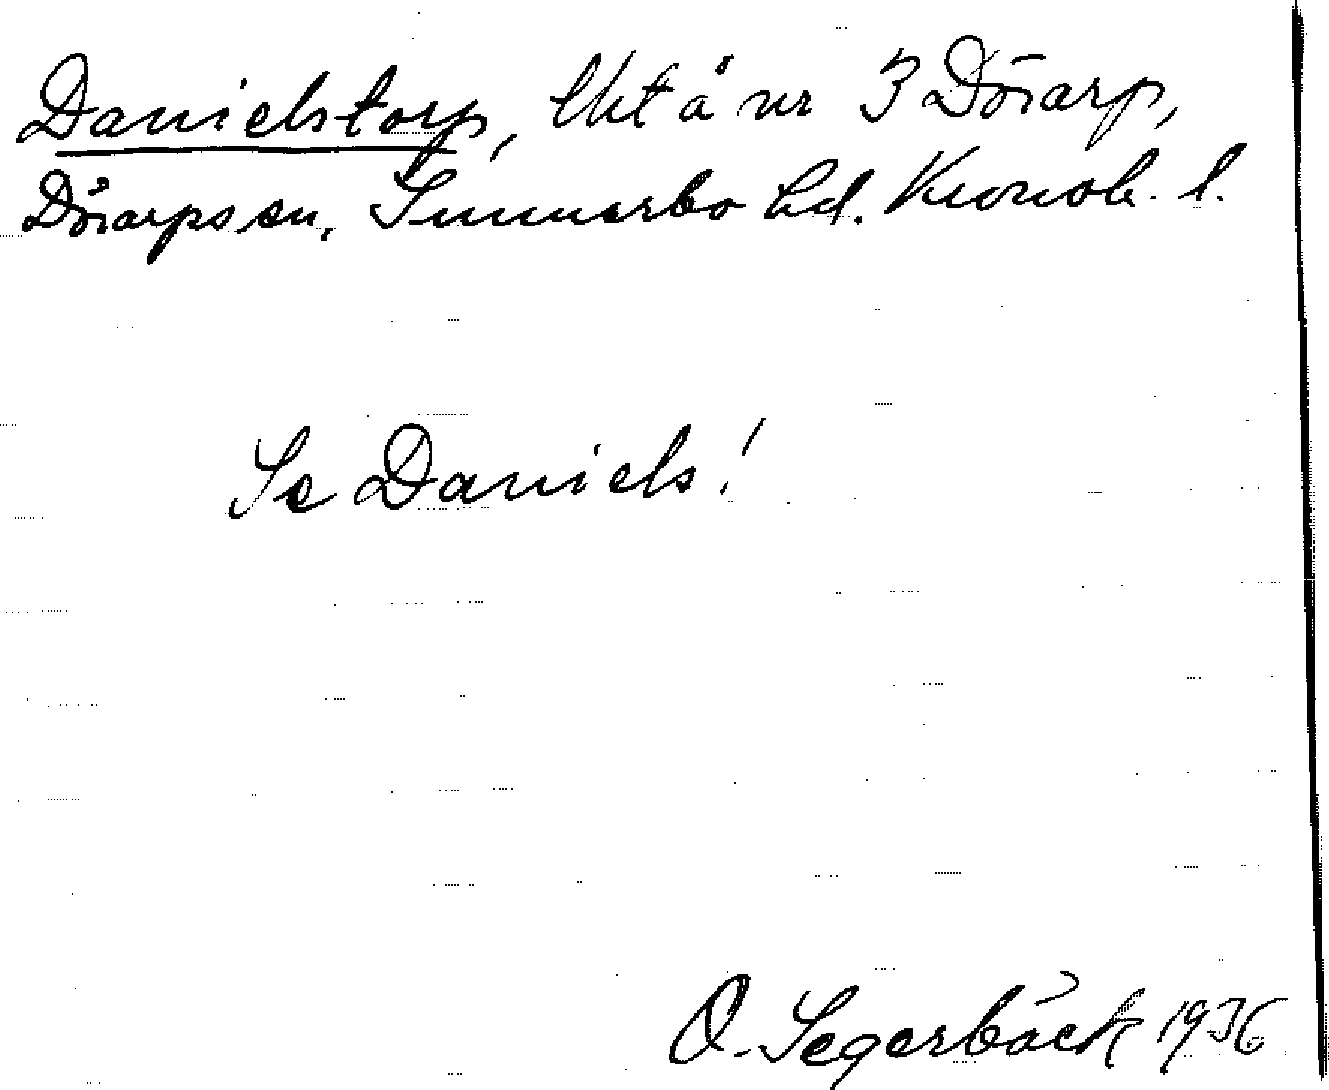 Danielstorp, lht å nr 3 Dörarp,
Dörarps sn, Sunnerbo hd. Kronob. l.
Se Daniels!
O. Segerbäck 1936